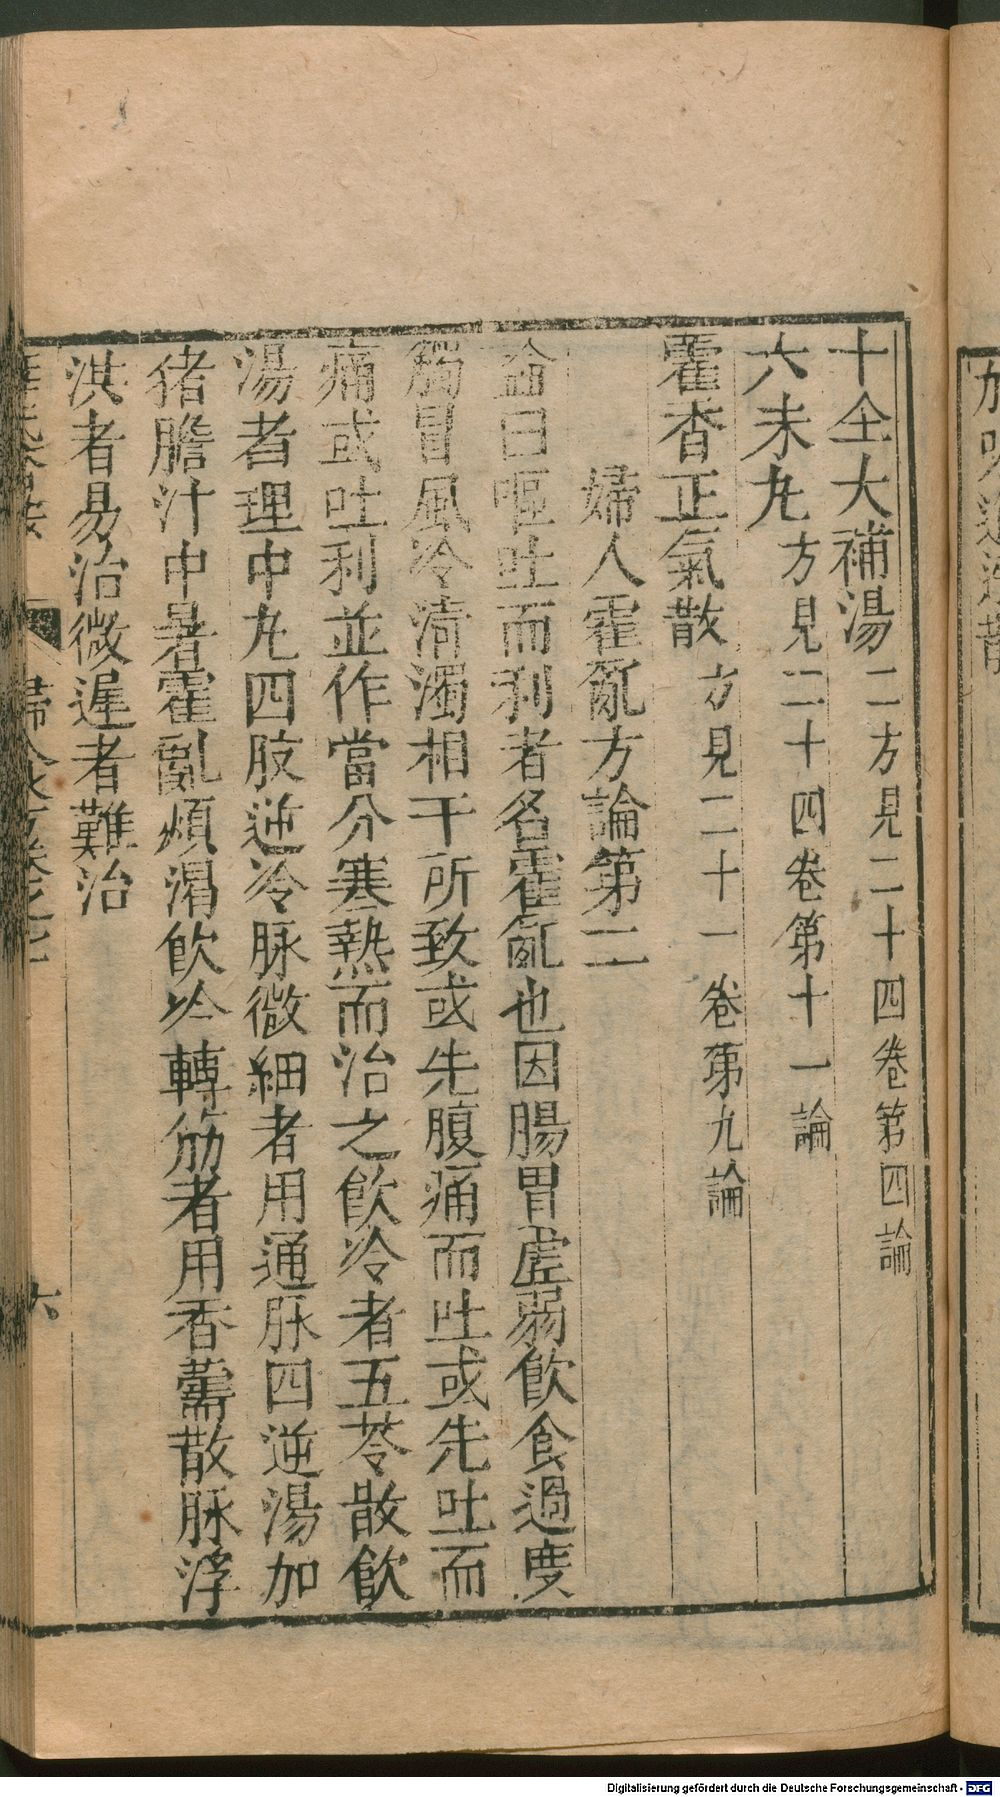 十全大補湯二方見二十四卷第四論
六未九方見二十四卷第十一論
霍香正氣散方見二十一卷第九論
婦人霍亂方論第二
論曰嘔吐而利者名霍亂也因腸胃虛弱飲食過度
觸冒風冷清濁相干所致或先腹痛而吐或先吐而
痛或吐利並作當分寒熱而治之飲冷者五苓散飲
湯者理中九四肢逆冷脉微細者用通脉四逆湯加
猪膽汁中暑霍亂煩渴飲冷轉筋者用香薷散脉浮
洪者易治微遲者難治
六
Digitalisierung gefördert durch die Deutsche Forschungsgemeinschaft - DFG